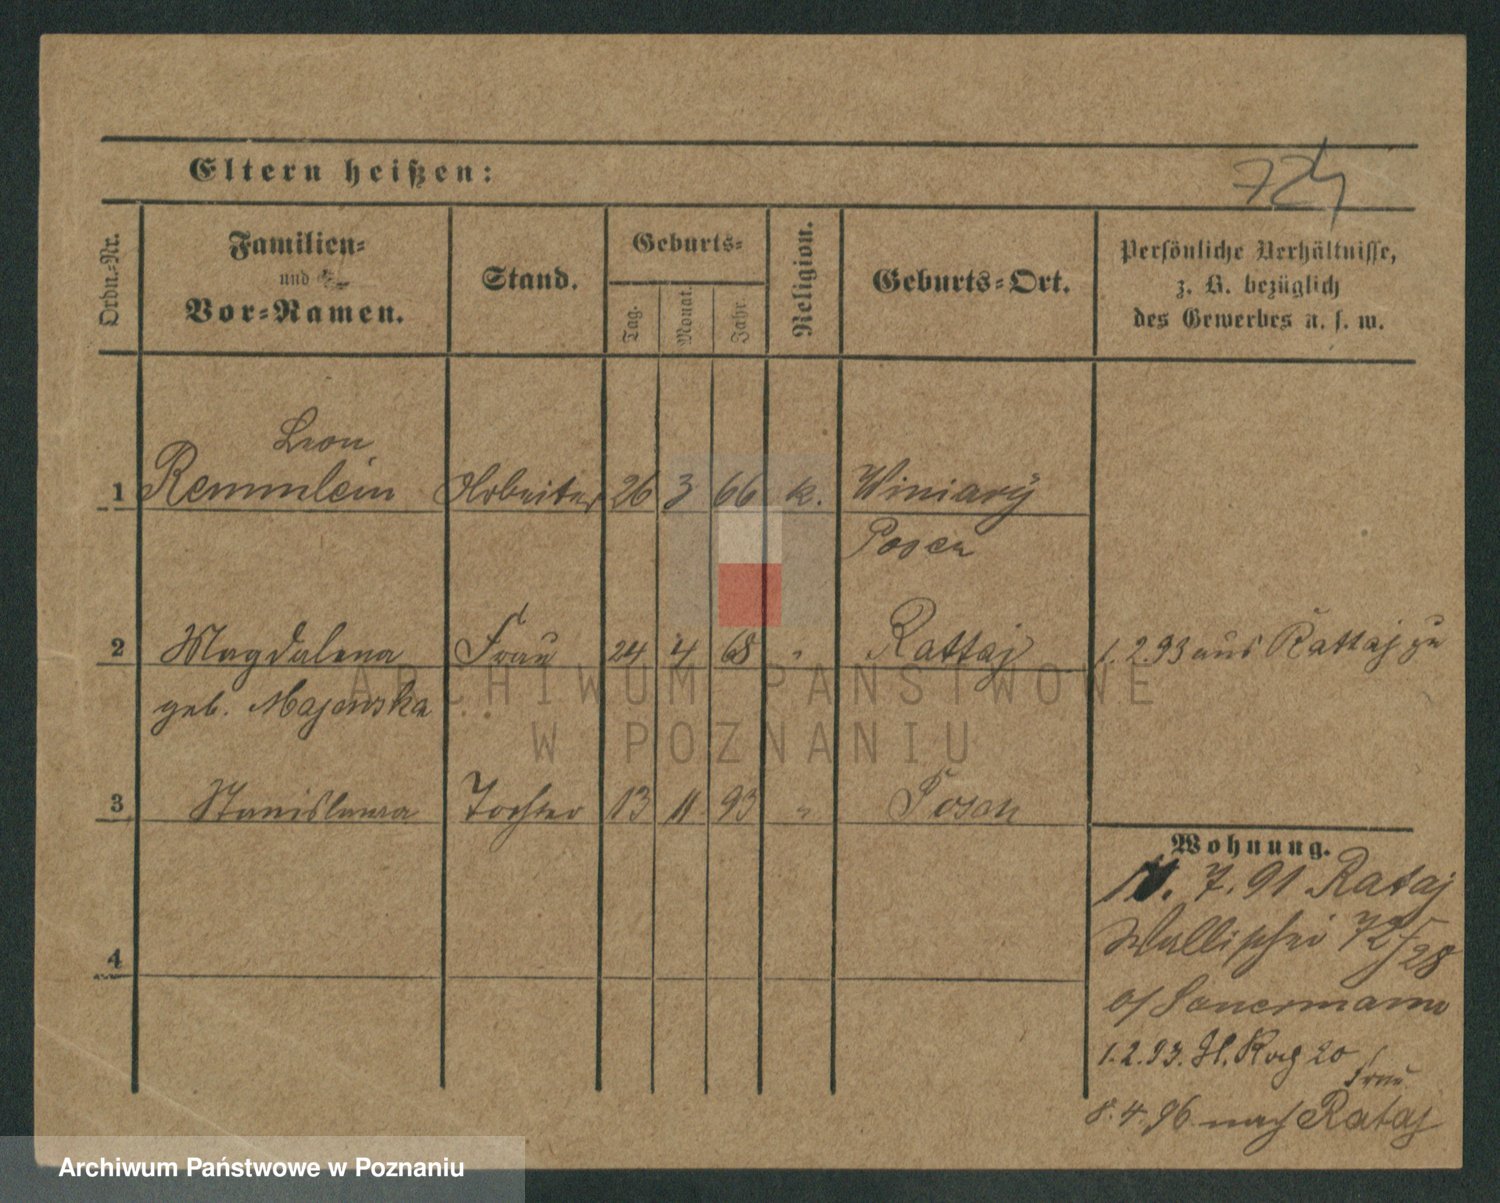 Eltern heißen:
724
Ordn.-Nr.
Familien-
und
Vor-Namen.
Stand.
Geburts-
Tag.
Monat.
Jahr.
Religion.
Geburts-Ort.
Persönliche Verhältnisse,
z. B. bezüglich
des Gewerbes u. s. w.
Leon
1 Remmlein Arbeiter 26 3 66 k. Winiary
Posen
2 Magdalena Frau 24 4 68 " Rattaj 1.2.93 aus Rattaj zu
geb. Majewska
3 Stanislawa Tochter 13 11 93 " Posen
Wohnung.
7.91 Rataj
Wallischei 72/28
1.2.93. 20
Frau
8.4.96 nach Rataj
4
ARCHIWUM PAŃSTWOWE
W POZNANIU
Archiwum Państwowe w Poznaniu